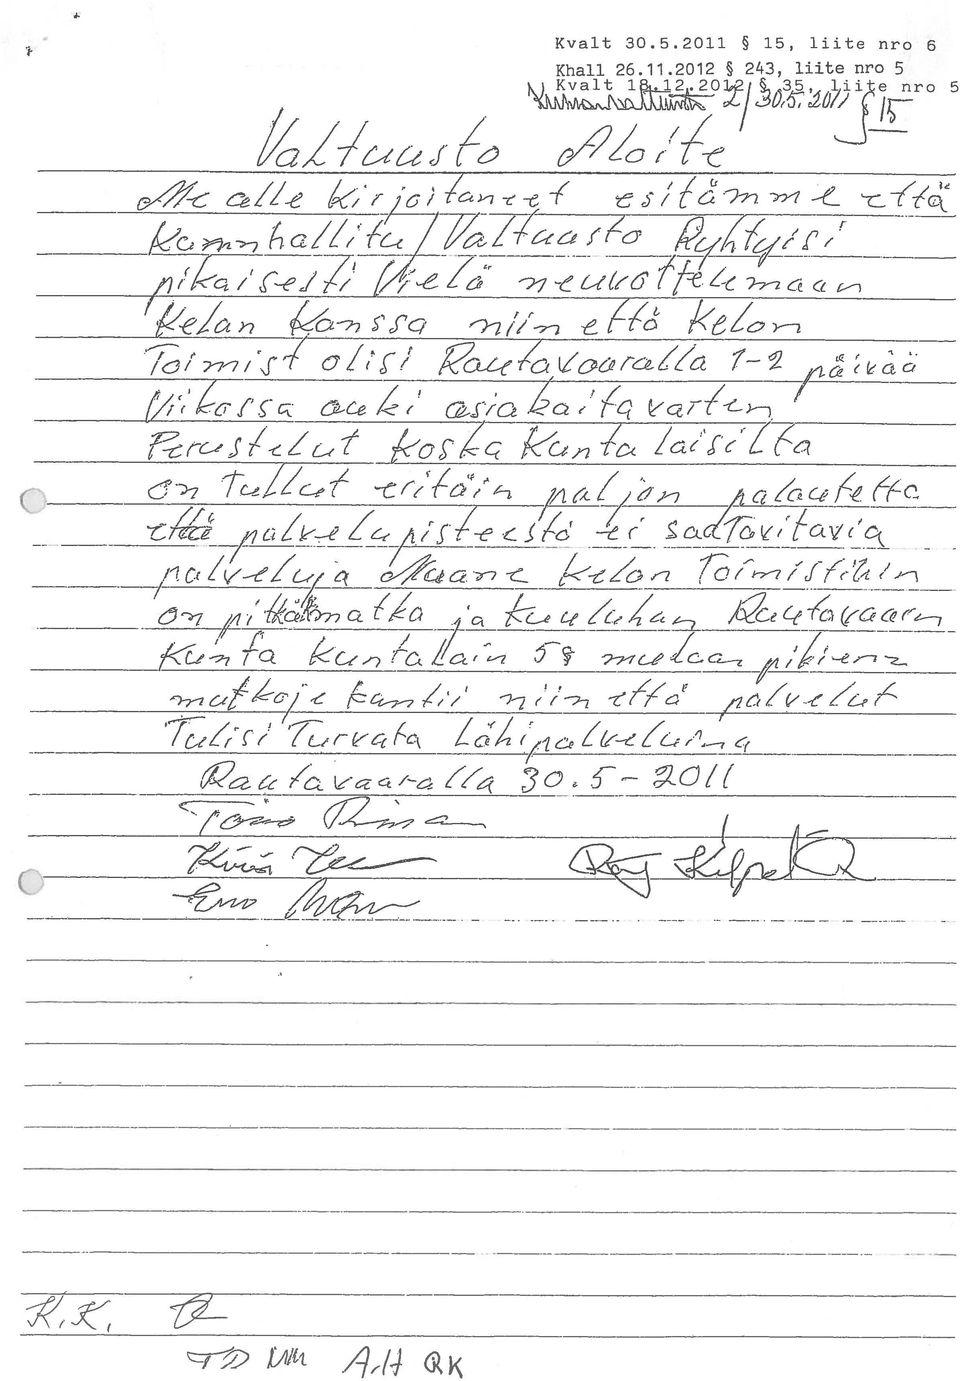 Kvalt 30.5.2011 § 15, liite nro 6
Khall 26.11.2012 § 243, liite nro 5
Kvalt 18.12.2012 § 35, liite nro 5
2/30.5.2011 § 15
Valtuusto Aloite
Me alle kirjoitaneet esitämme että
Kunnhallitu/Valtuusto Ryhtyisi
pikaisesti Vielä neuvottelemaan
Kelan Kanssa niin että Kelan
Toimist olisi Rautavaaralla 1-2 päivää
Viikossa auki asiakaita varten
Perustelut koska Kunta laisilta
on Tullut eritäin paljon palautetta
että palvelupisteestä ei saaTavitavia
palveluja Muane Kelan Toimistihin
on pitkä matka ja kuuluhan Rautavaarn
Kunta kuntalain 5§ mukaan pikienä
matkoje kuntii niin että palvelut
Tulisi Turvata Lähipalveluina
Rautavaaralla 30.5-2011
K.K.
TD MM A.H RK